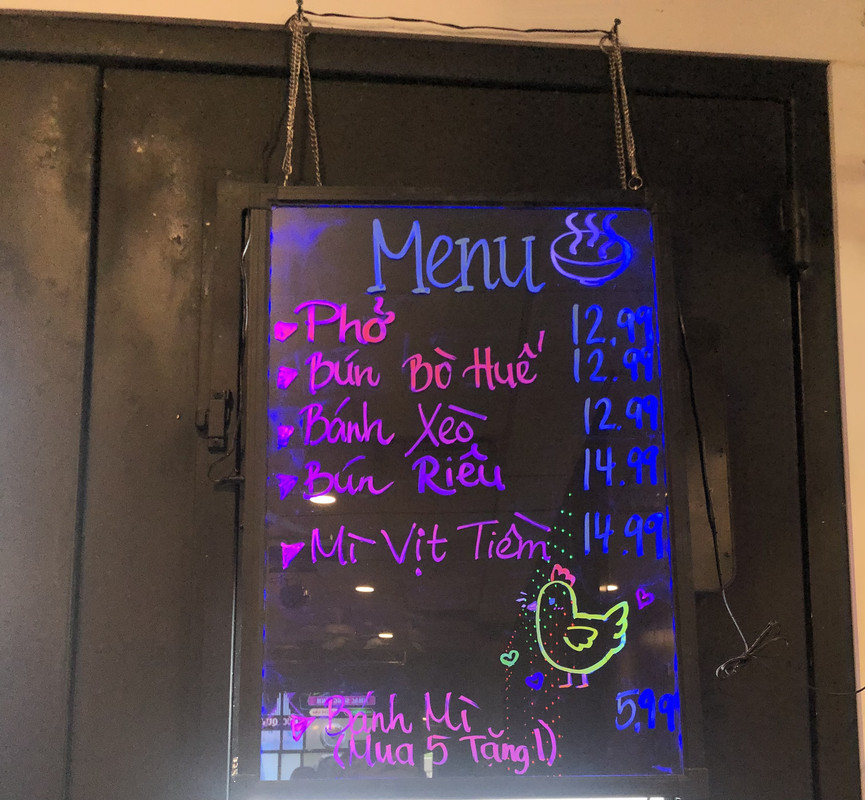 Menu
Phở 12.99
Bún Bò Huế 12.99
Bánh Xèo 12.99
Bún Riêu 14.99
Mì Vịt Tiềm 14.99
Bánh Mì 5.99
(Mua 5 Tăng 1)